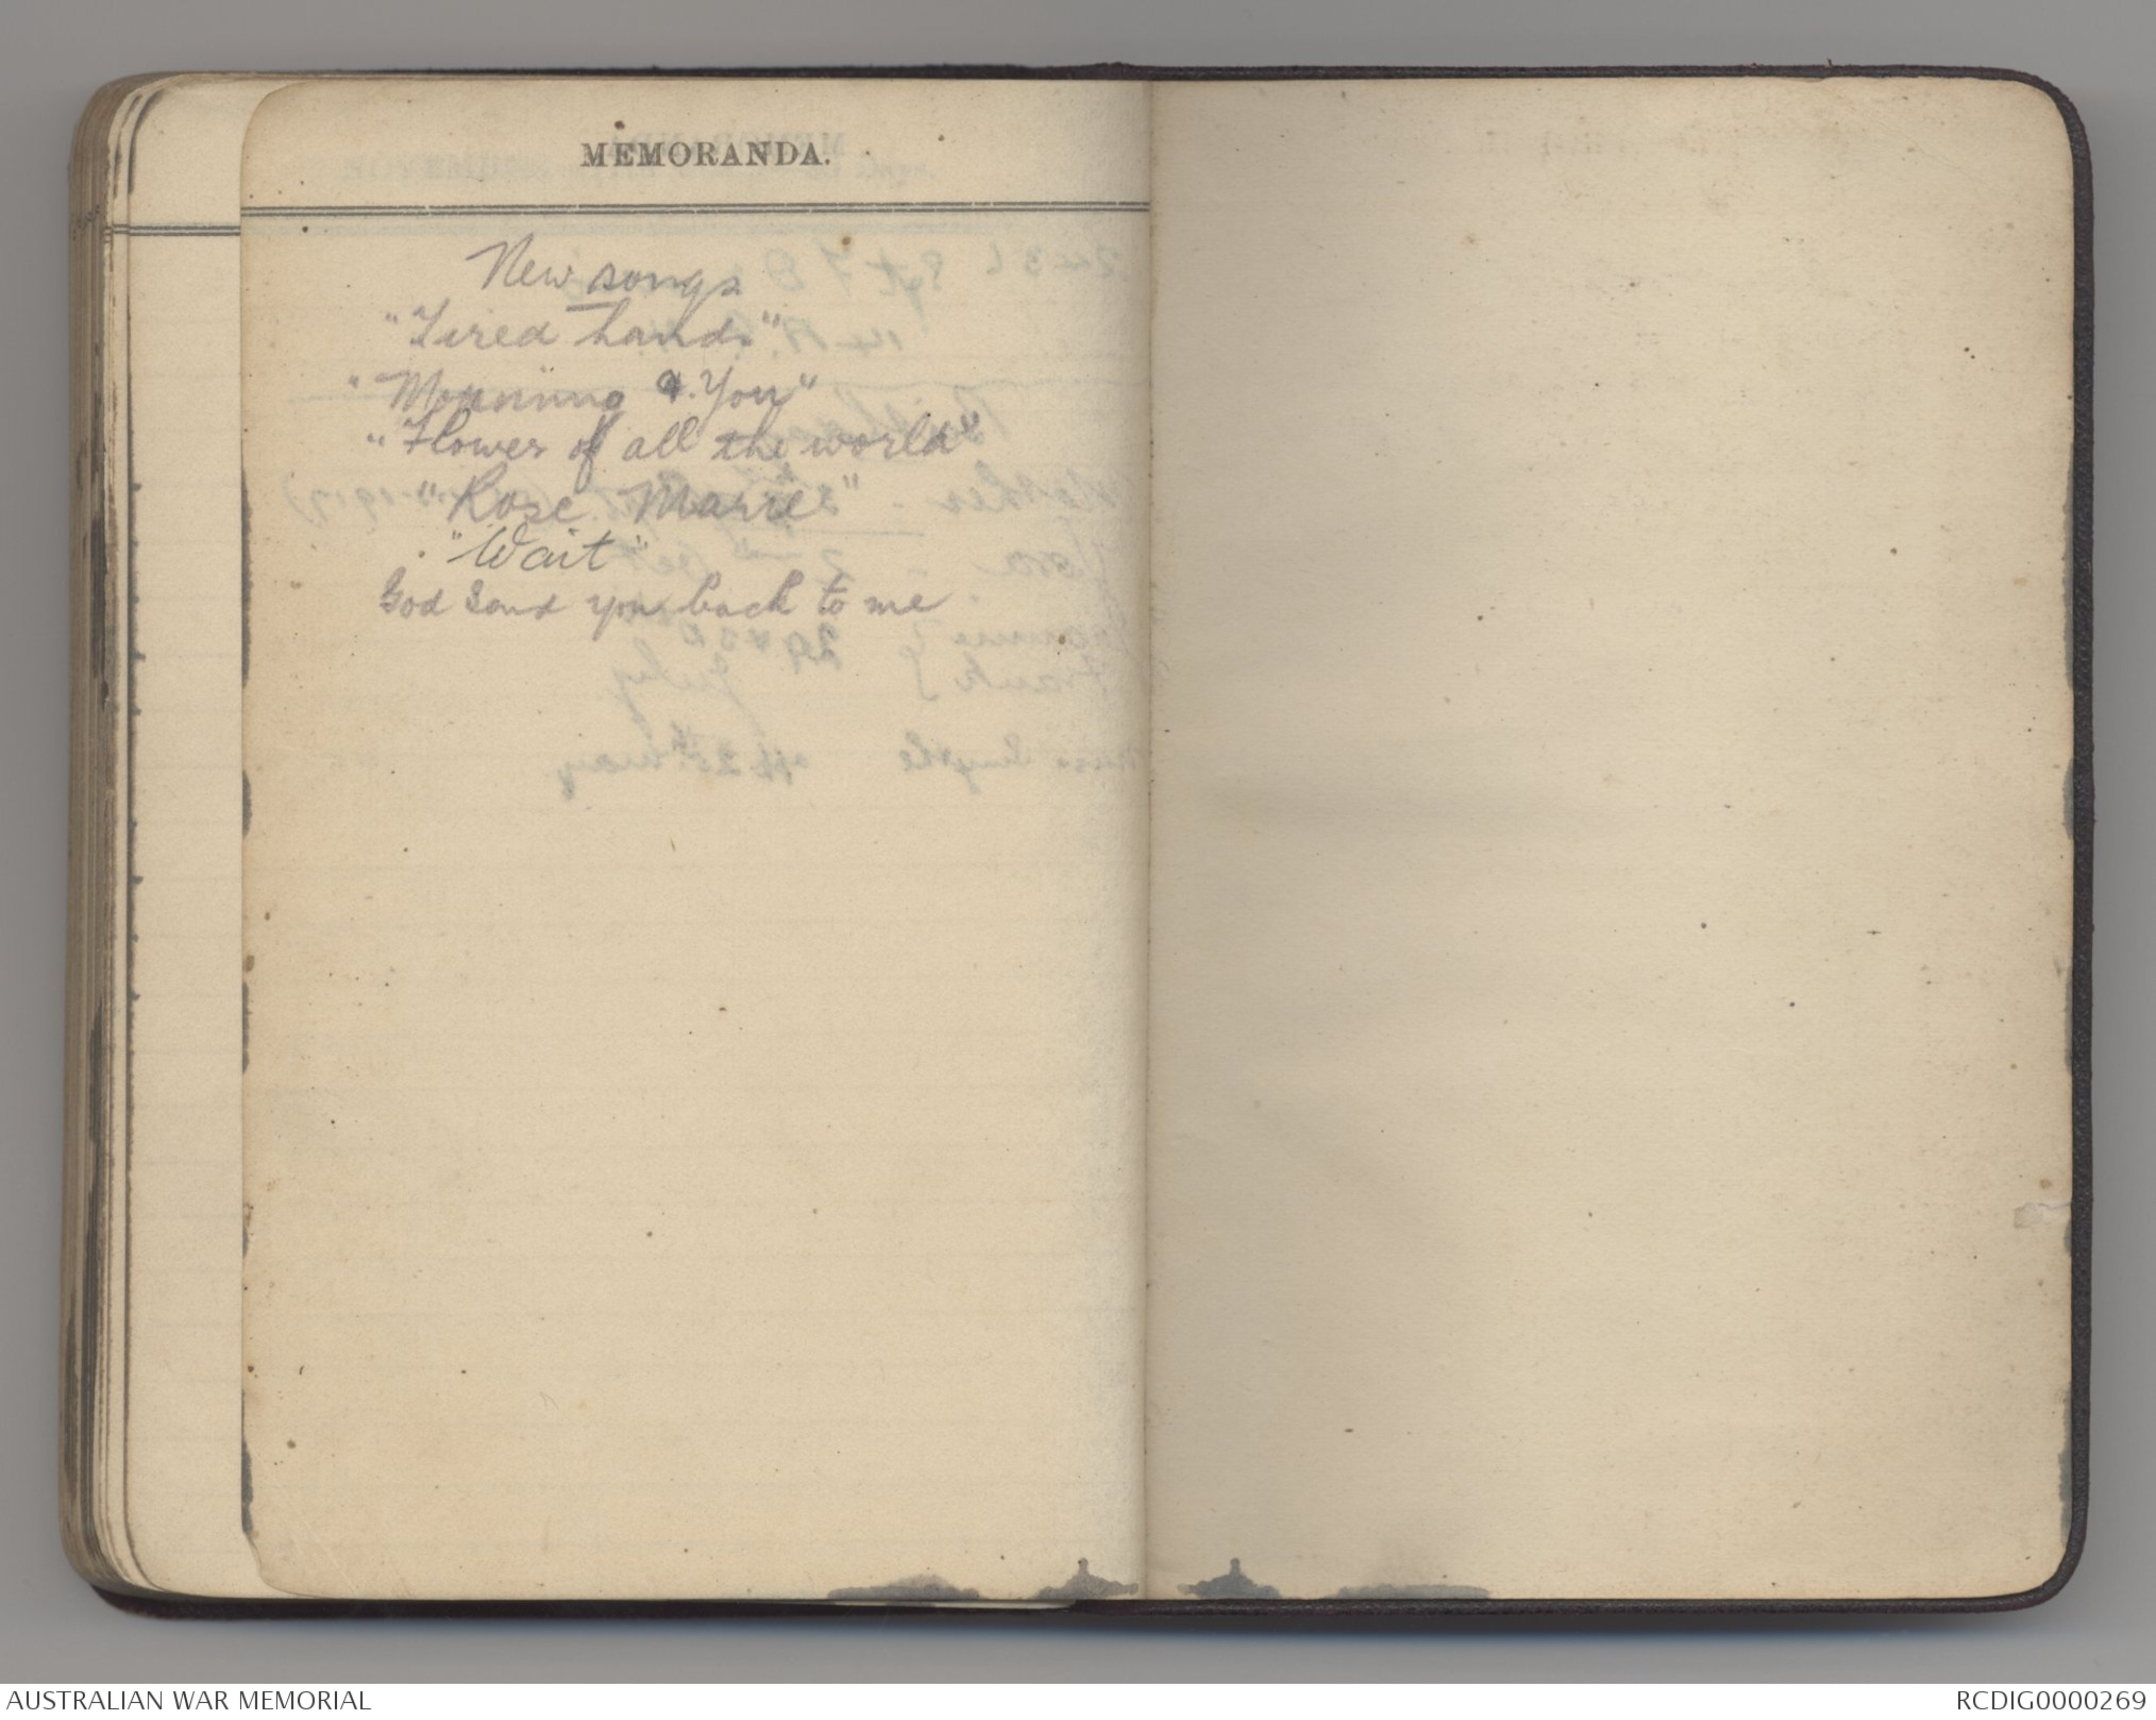 MEMORANDA.
New songs
"Tired hands"
"Morning & You"
"Flower of all the world"
"Rose Marie"
"Wait"
God send you back to me.
AUSTRALIAN WAR MEMORIAL
RCDIG0000269